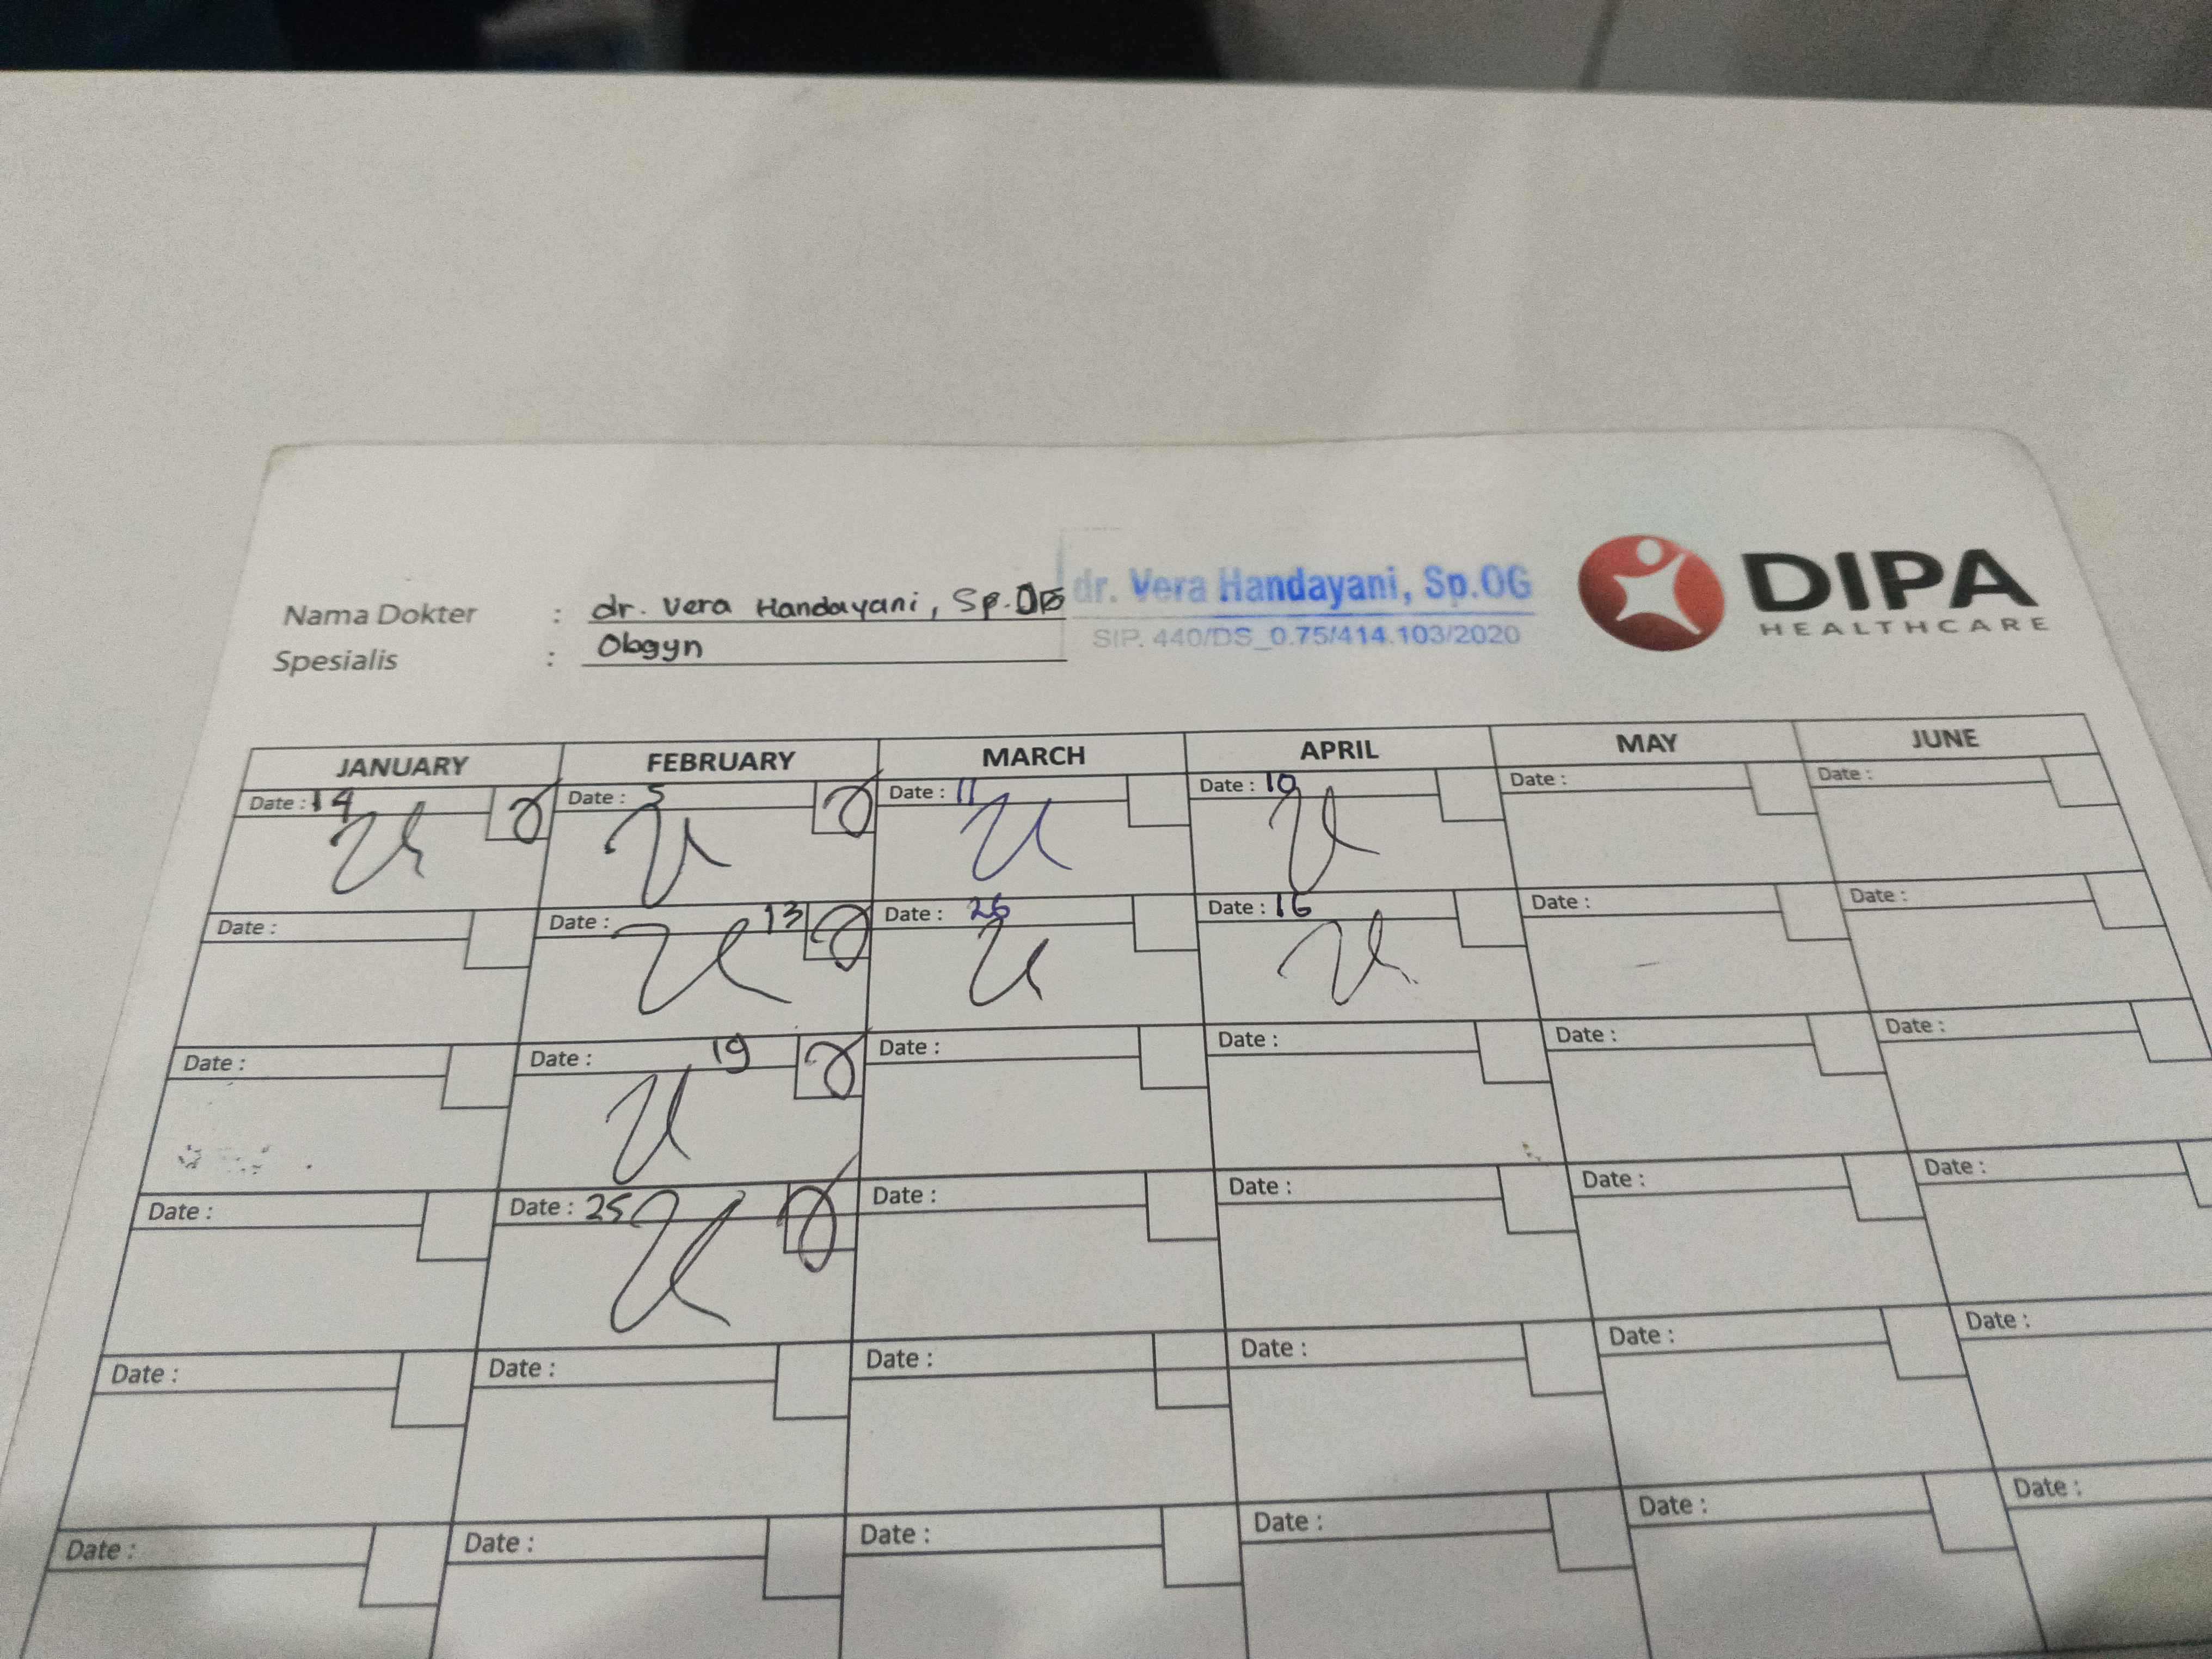 dr. Vera Handayani, Sp.OG
SIP. 440/DS_0.75/414.103/2020
DIPA
HEALTHCARE
Nama Dokter : dr. Vera Handayani, Sp.OG
Spesialis : Obgyn
JANUARY FEBRUARY MARCH APRIL MAY JUNE
Date : 14 Date : 5 Date : 11 Date : 10 Date : Date :
Date : Date : 13 Date : 26 Date : 16 Date : Date :
Date : Date : 19 Date : Date : Date : Date :
Date : Date : 25 Date : Date : Date : Date :
Date : Date : Date : Date : Date : Date :
Date : Date : Date : Date : Date : Date :